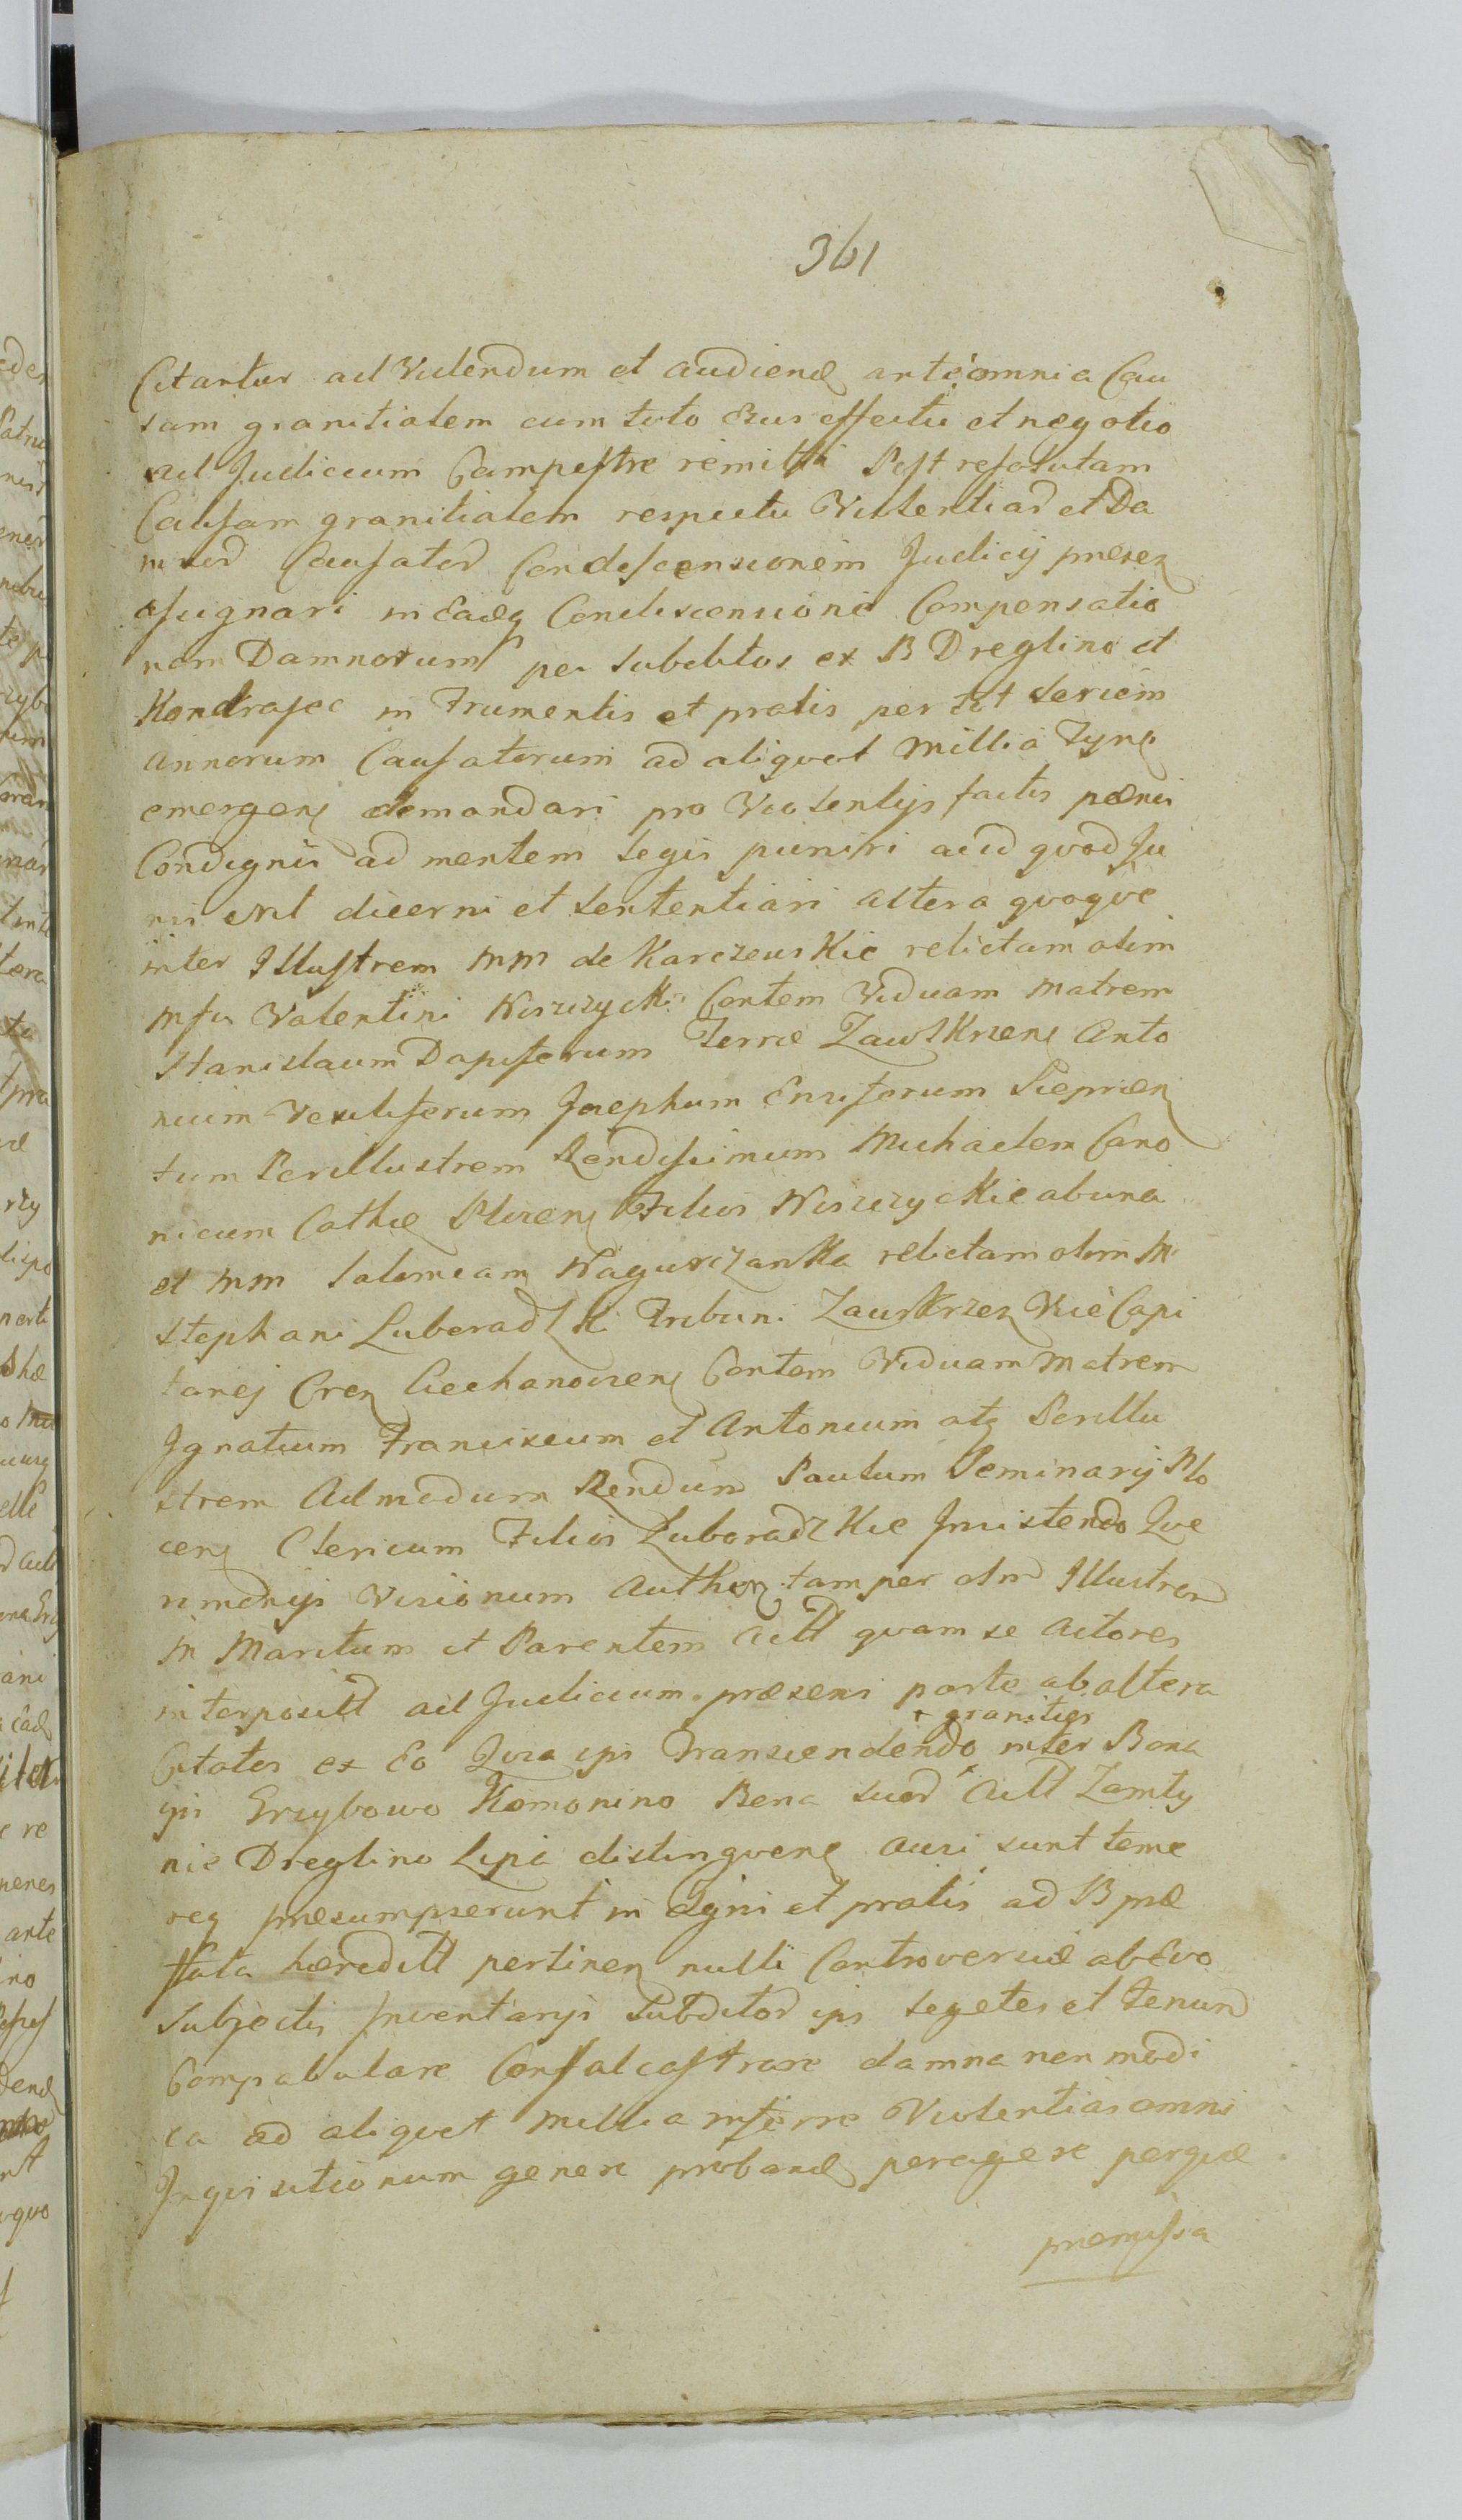 361
Citantur ad Videndum et audiend ante omnia Cau
sam granitialem cum toto Ejus effectu et negotio
ad Judicium Campestre remitti Post resolutam
Causam granitialem respectu Violentiar et Da
mnor Causator Condescensionem Judicij præsen
assignari in Eadeq Condescensione Compensatio
nem Damnorum per subditos ex B Dreglino et
Kondrajec in Frumentis et pratis per tot seriem
annorum Causatorum ad aliquot Millia Tynf
emergen demandari pro Violentijs factis pænis
Condignis ad mentem Legis puniri aliud quod Ju
ris erit dicerni et sententiari altera quoque
inter Illustrem MM de Karczewskie relictam olim
Mfci Valentini Niszczycki Contem Viduam Matrem
Stanislaum Dapiferum Terræ Zawskrzen Anto
nium Vexiliferum Josephum Ensiferum Sieprcen
tum Perillustrem Rendissimum Michaelem Cano
nicum Cathæ Plocen Filios Niszczyckie ab una
et MM Salomeam Naguszzanka relictam olim M
Stephani Luboradzki Tribuni Zawskrzen Vice Capi
tanej Cren Ciechanovien Contem Viduam Matrem
Ignatium Franciscum et Antonium atq Perillu
strem Admodum Rendum Paulum Seminarij Plo
cen Clericum Filios Luboradzkie Insistendo Que
rimonijs Visionum Author tam per olm Illustrem
M Maritum et Parentem Actt quam se Actores
interposittt ad Judicium præsens parte ab altera
Citatos ex Eo Quia ipsi Transcendendo inter Bona
+ granities
ips Grzybowo Komonino Bona suor Actt Zamty
nie Dreglino Lipa distinguen ausi sunt teme
req præsumpserunt in Agris et pratis ad B præ
ssata hæreditt pertinen nulli Controversiæ ab Evo
subjectis Inventarijs Subditor ips segetes et fenum
Compabulare Confalcastrare damna non modi
ca ad aliquot Millia inferre Violentias omni
Inquisitionum genere proband peragere perquæ
præmissa